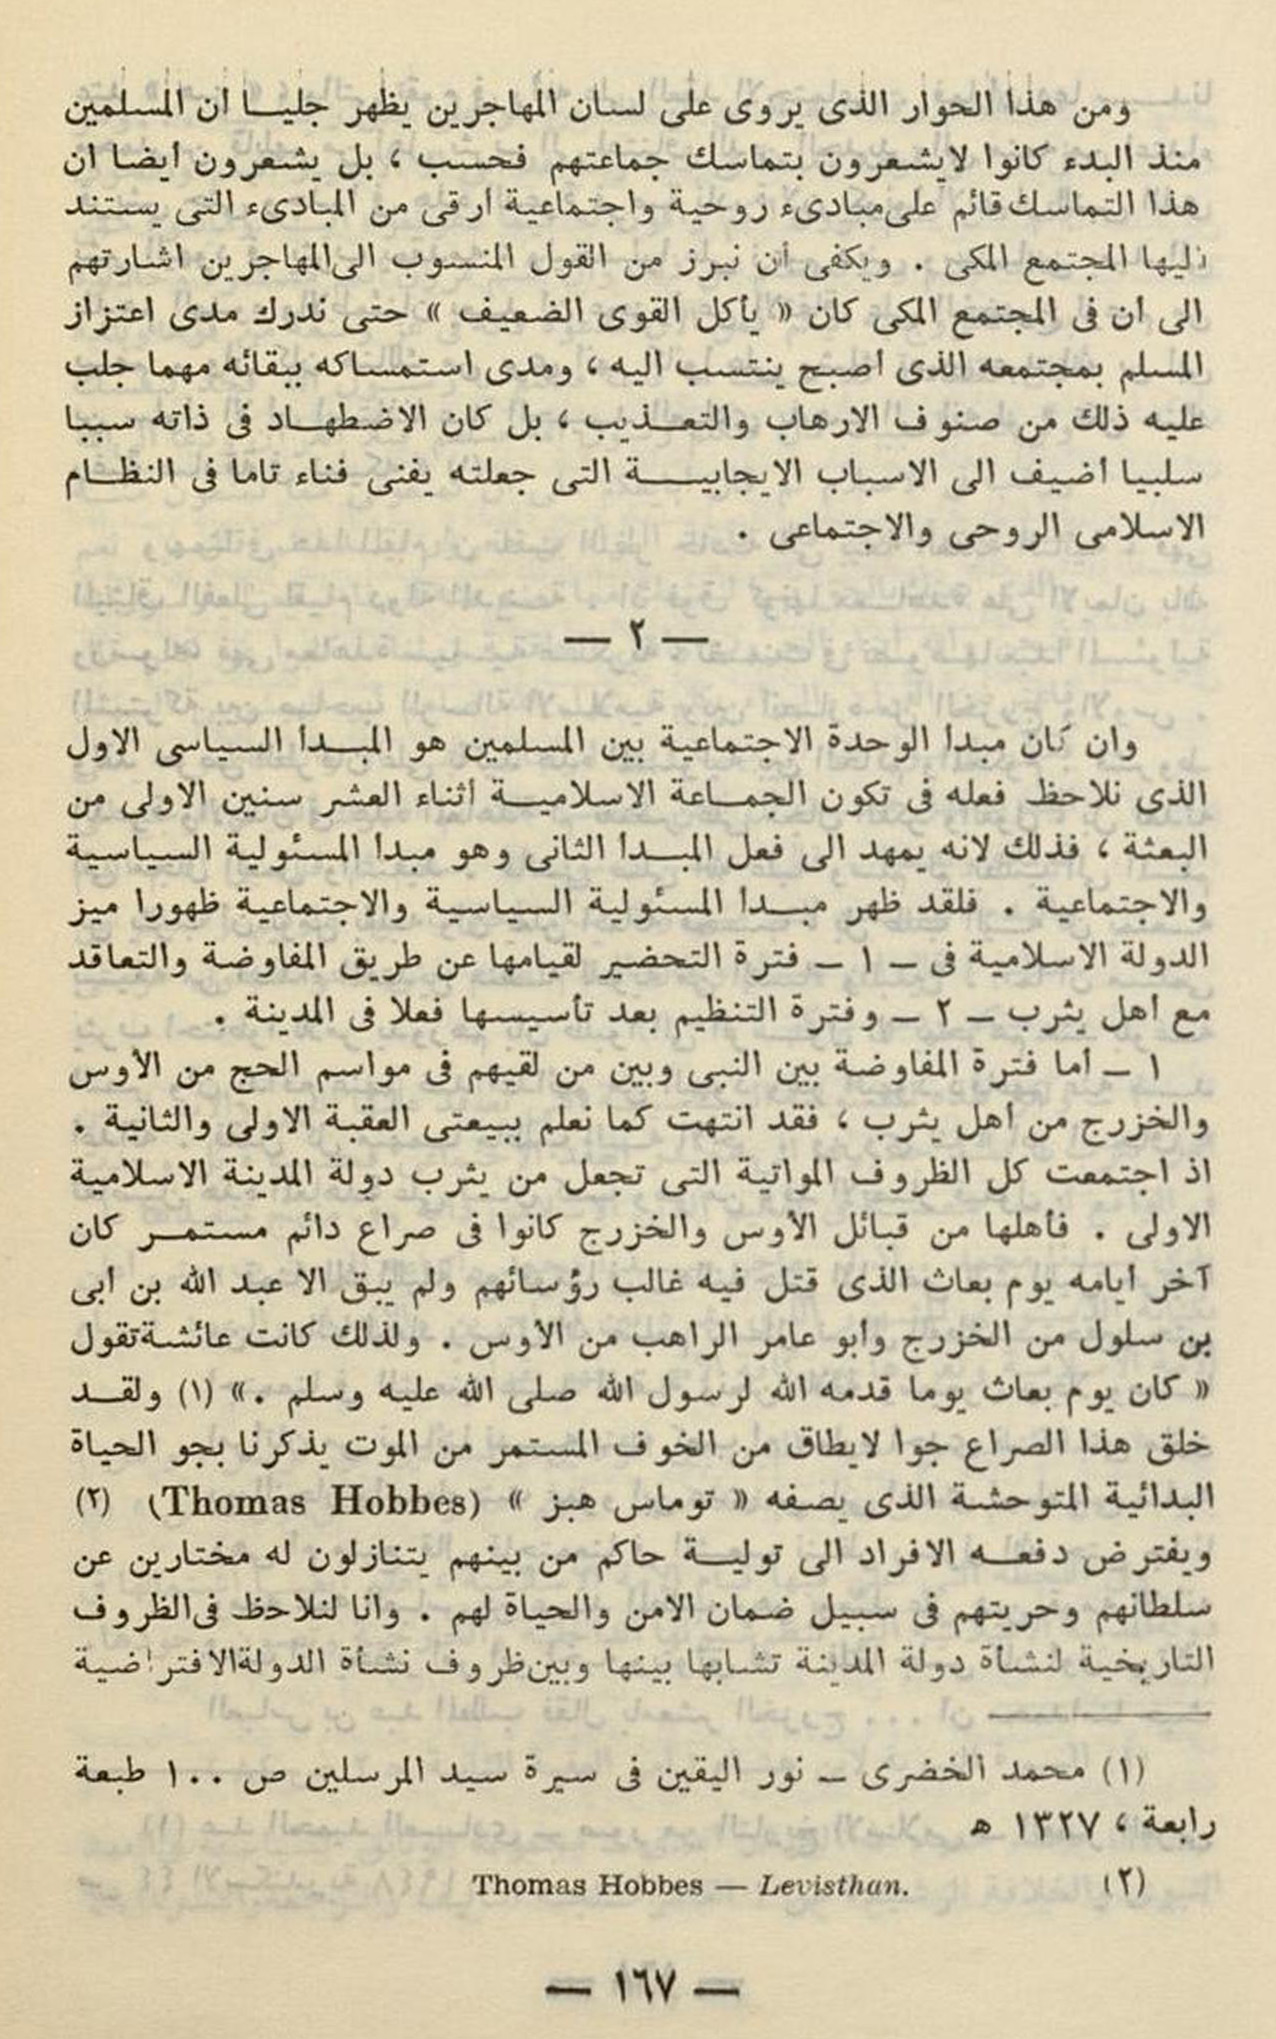 ومن هذا الحوار الذى يروى على لسان المهاجرين يظهر جليا أن المسلمين
منذ البدء كانوا لايشعرون بتماسك جماعتهم فحسب ، بل يشعرون أيضا أن
هذا التماسك قائم على مبادىء روحية واجتماعية أرقى من المبادىء التى يستند
اليها المجتمع المكى . ويكفى أن نبرز من القول المنسوب الى المهاجرين اشارتهم
الى أن فى المجتمع المكى كان « يأكل القوى الضعيف » حتى ندرك مدى اعتزاز
المسلم بمجتمعه الذى أصبح ينتسب اليه ، ومدى استمساكه ببقائه مهما جلب
عليه ذلك من صنوف الارهاب والتعذيب ، بل كان الاضطهاد فى ذاته سببا
سلبيا أضيف الى الاسباب الايجابية التى جعلته يفنى فناء تاما فى النظام
الاسلامى الروحى والاجتماعى .
— ٢ —
وان كان مبدأ الوحدة الاجتماعية بين المسلمين هو المبدأ السياسى الاول
الذى نلاحظ فعله فى تكون الجماعة الاسلامية أثناء العشر سنين الاولى من
البعثة ، فذلك لانه يمهد الى فعل المبدأ الثانى وهو مبدأ المسئولية السياسية
والاجتماعية . فلقد ظهر مبدأ المسئولية السياسية والاجتماعية ظهورا ميز
الدولة الاسلامية فى — ١ — فترة التحضير لقيامها عن طريق المفاوضة والتعاقد
مع أهل يثرب — ٢ — وفترة التنظيم بعد تأسيسها فعلا فى المدينة .
١ — أما فترة المفاوضة بين النبى وبين من لقيهم فى مواسم الحج من الأوس
والخزرج من أهل يثرب ، فقد انتهت كما نعلم ببيعتى العقبة الاولى والثانية .
اذ اجتمعت كل الظروف المواتية التى تجعل من يثرب دولة المدينة الاسلامية
الاولى . فأهلها من قبائل الأوس والخزرج كانوا فى صراع دائم مستمر كان
آخر أيامه يوم بعاث الذى قتل فيه غالب رؤسائهم ولم يبق الا عبد الله بن أبى
بن سلول من الخزرج وأبو عامر الراهب من الأوس . ولذلك كانت عائشة تقول
« كان يوم بعاث يوما قدمه الله لرسول الله صلى الله عليه وسلم .» (١) ولقد
خلق هذا الصراع جوا لايطاق من الخوف المستمر من الموت يذكرنا بجو الحياة
البدائية المتوحشة الذى يصفه « توماس هبز » (Thomas Hobbes) (٢)
ويفترض دفعه الافراد الى تولية حاكم من بينهم يتنازلون له مختارين عن
سلطانهم وحريتهم فى سبيل ضمان الامن والحياة لهم . وانا لنلاحظ فى الظروف
التاريخية لنشأة دولة المدينة تشابها بينها وبين ظروف نشأة الدولة الافتراضية
(١) محمد الخضرى — نور اليقين فى سيرة سيد المرسلين ص ١٠٠ طبعة
رابعة ، ١٣٢٧ ه
(٢) Thomas Hobbes — Levisthan.
— ١٦٧ —